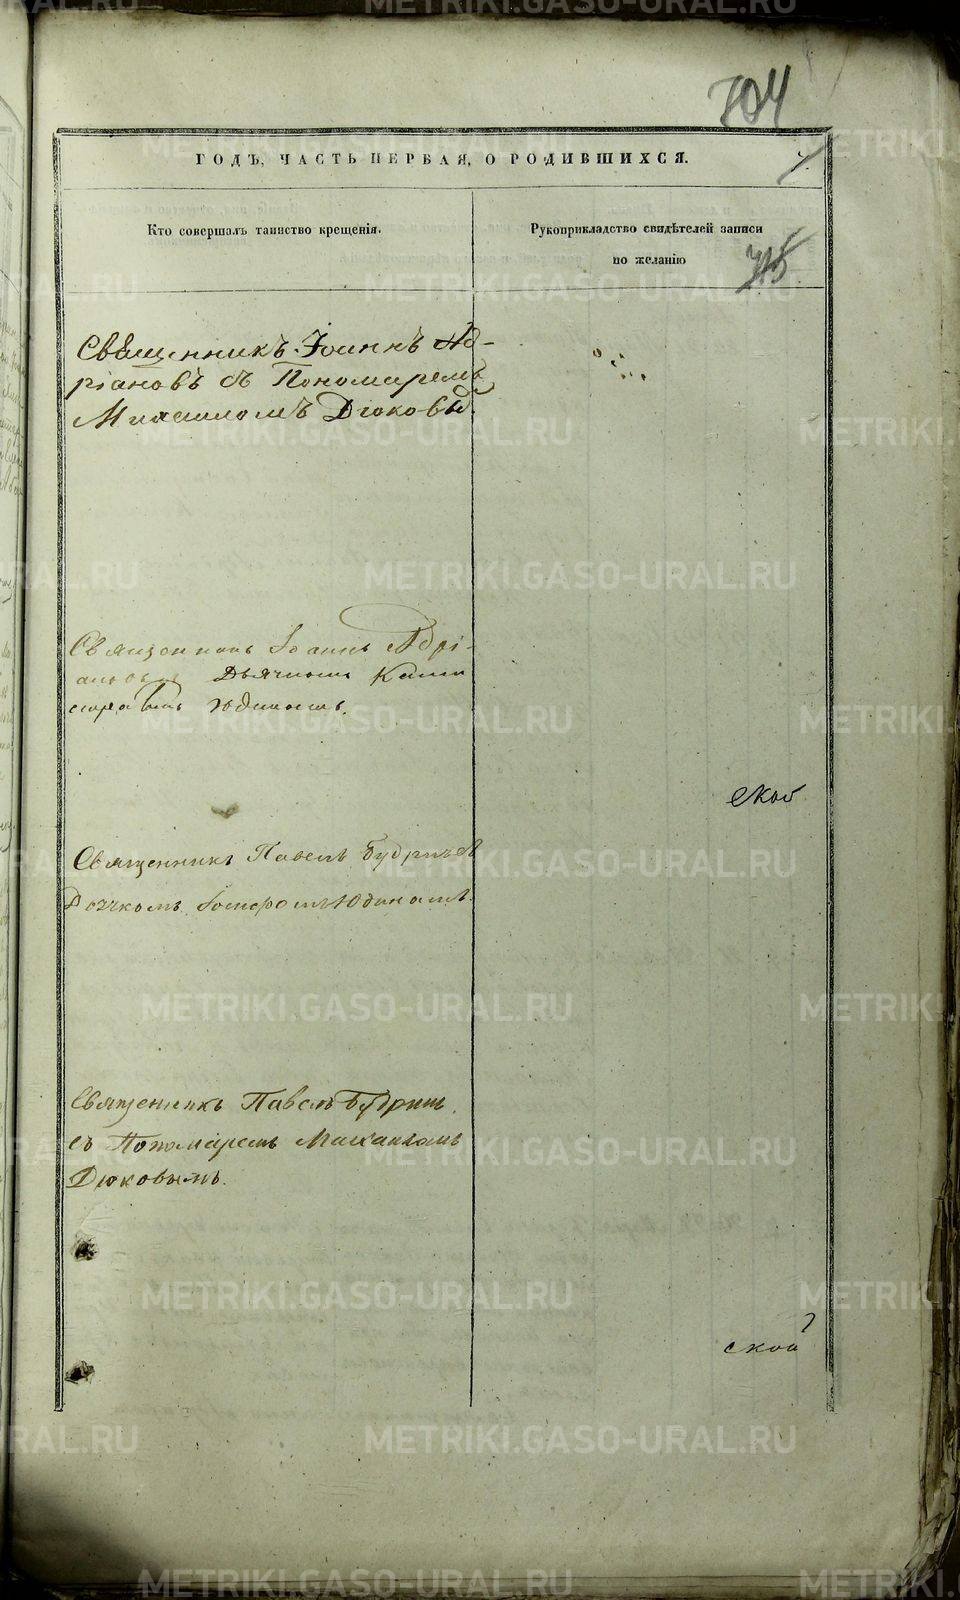 704
ГОДЪ, ЧАСТЬ ПЕРВАЯ, О РОДИВШИХСЯ.
Кто совершалъ таинство крещенія.
Рукоприкладство свидѣтелей записи
по желанію
715
Священникъ Іоаннъ Ад-
ріановъ съ Пономаремъ
Михаиломъ Дюковы
Священникъ Іоаннъ Адрі-
ановъ Дьячкомъ
Юдинымъ.
ской
Священникъ Павелъ Будринъ
Дьячкомъ Юдинымъ.
Священникъ Павелъ Будринъ
съ Пономаремъ Михаиломъ
Дюковымъ.
ской
METRIKI.GASO-URAL.RU